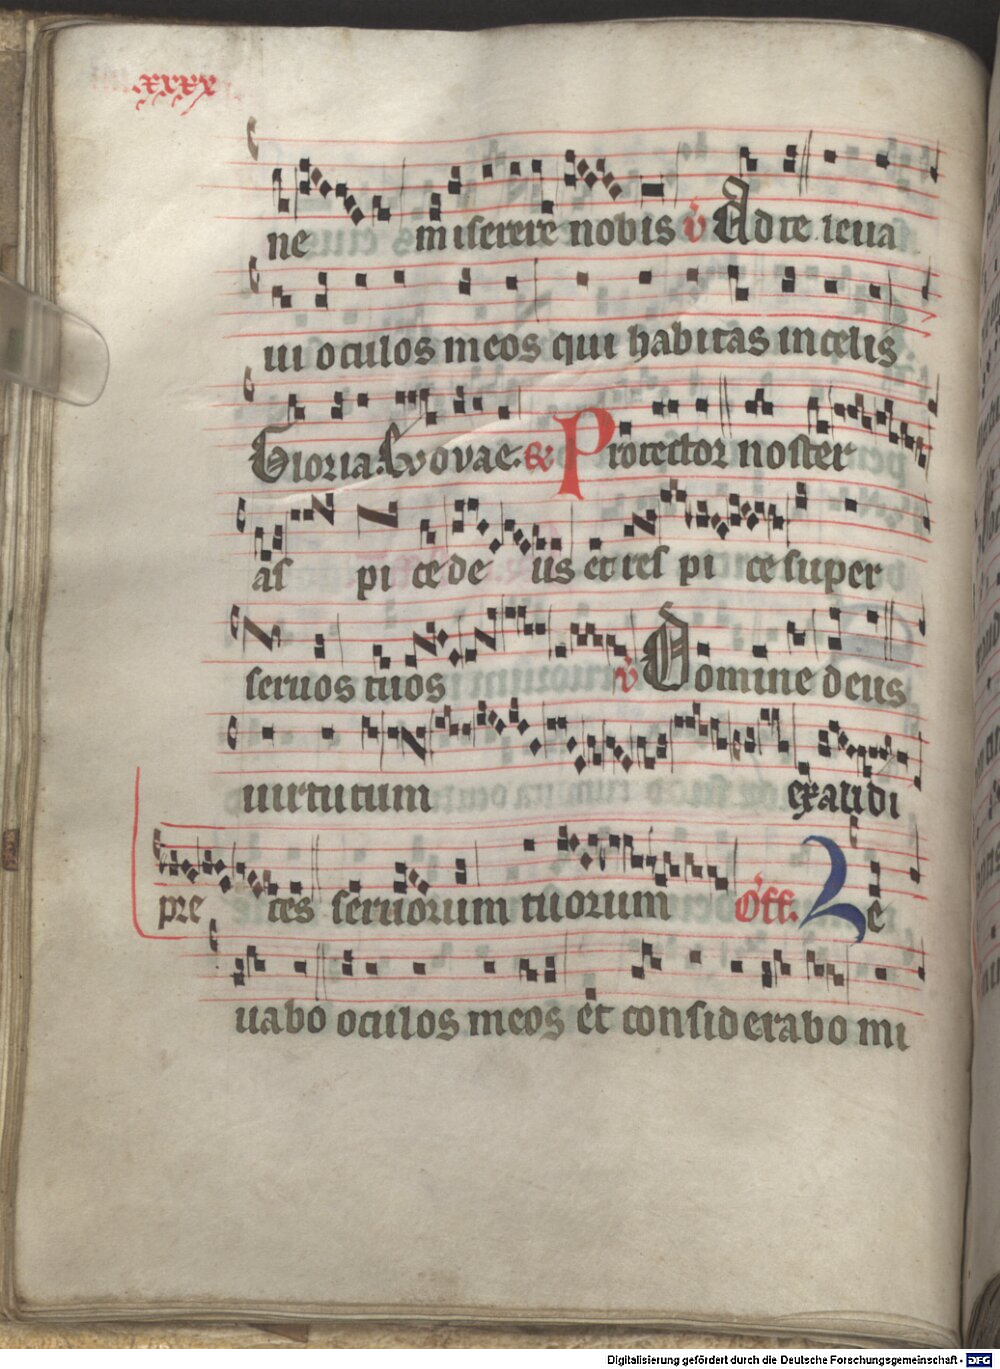 .xxxx
ne miserere nobis v Ad te leua
ui oculos meos qui habitas in celis
Gloria. Euouae. gr Protector noster
as pi ce de us et res pi ce super
seruos tuos v Domine deus
uirtutum exaudi
pre ces seruorum tuorum Off. Le
uabo oculos meos et considerabo mi
Digitalisierung gefördert durch die Deutsche Forschungsgemeinschaft - DFG